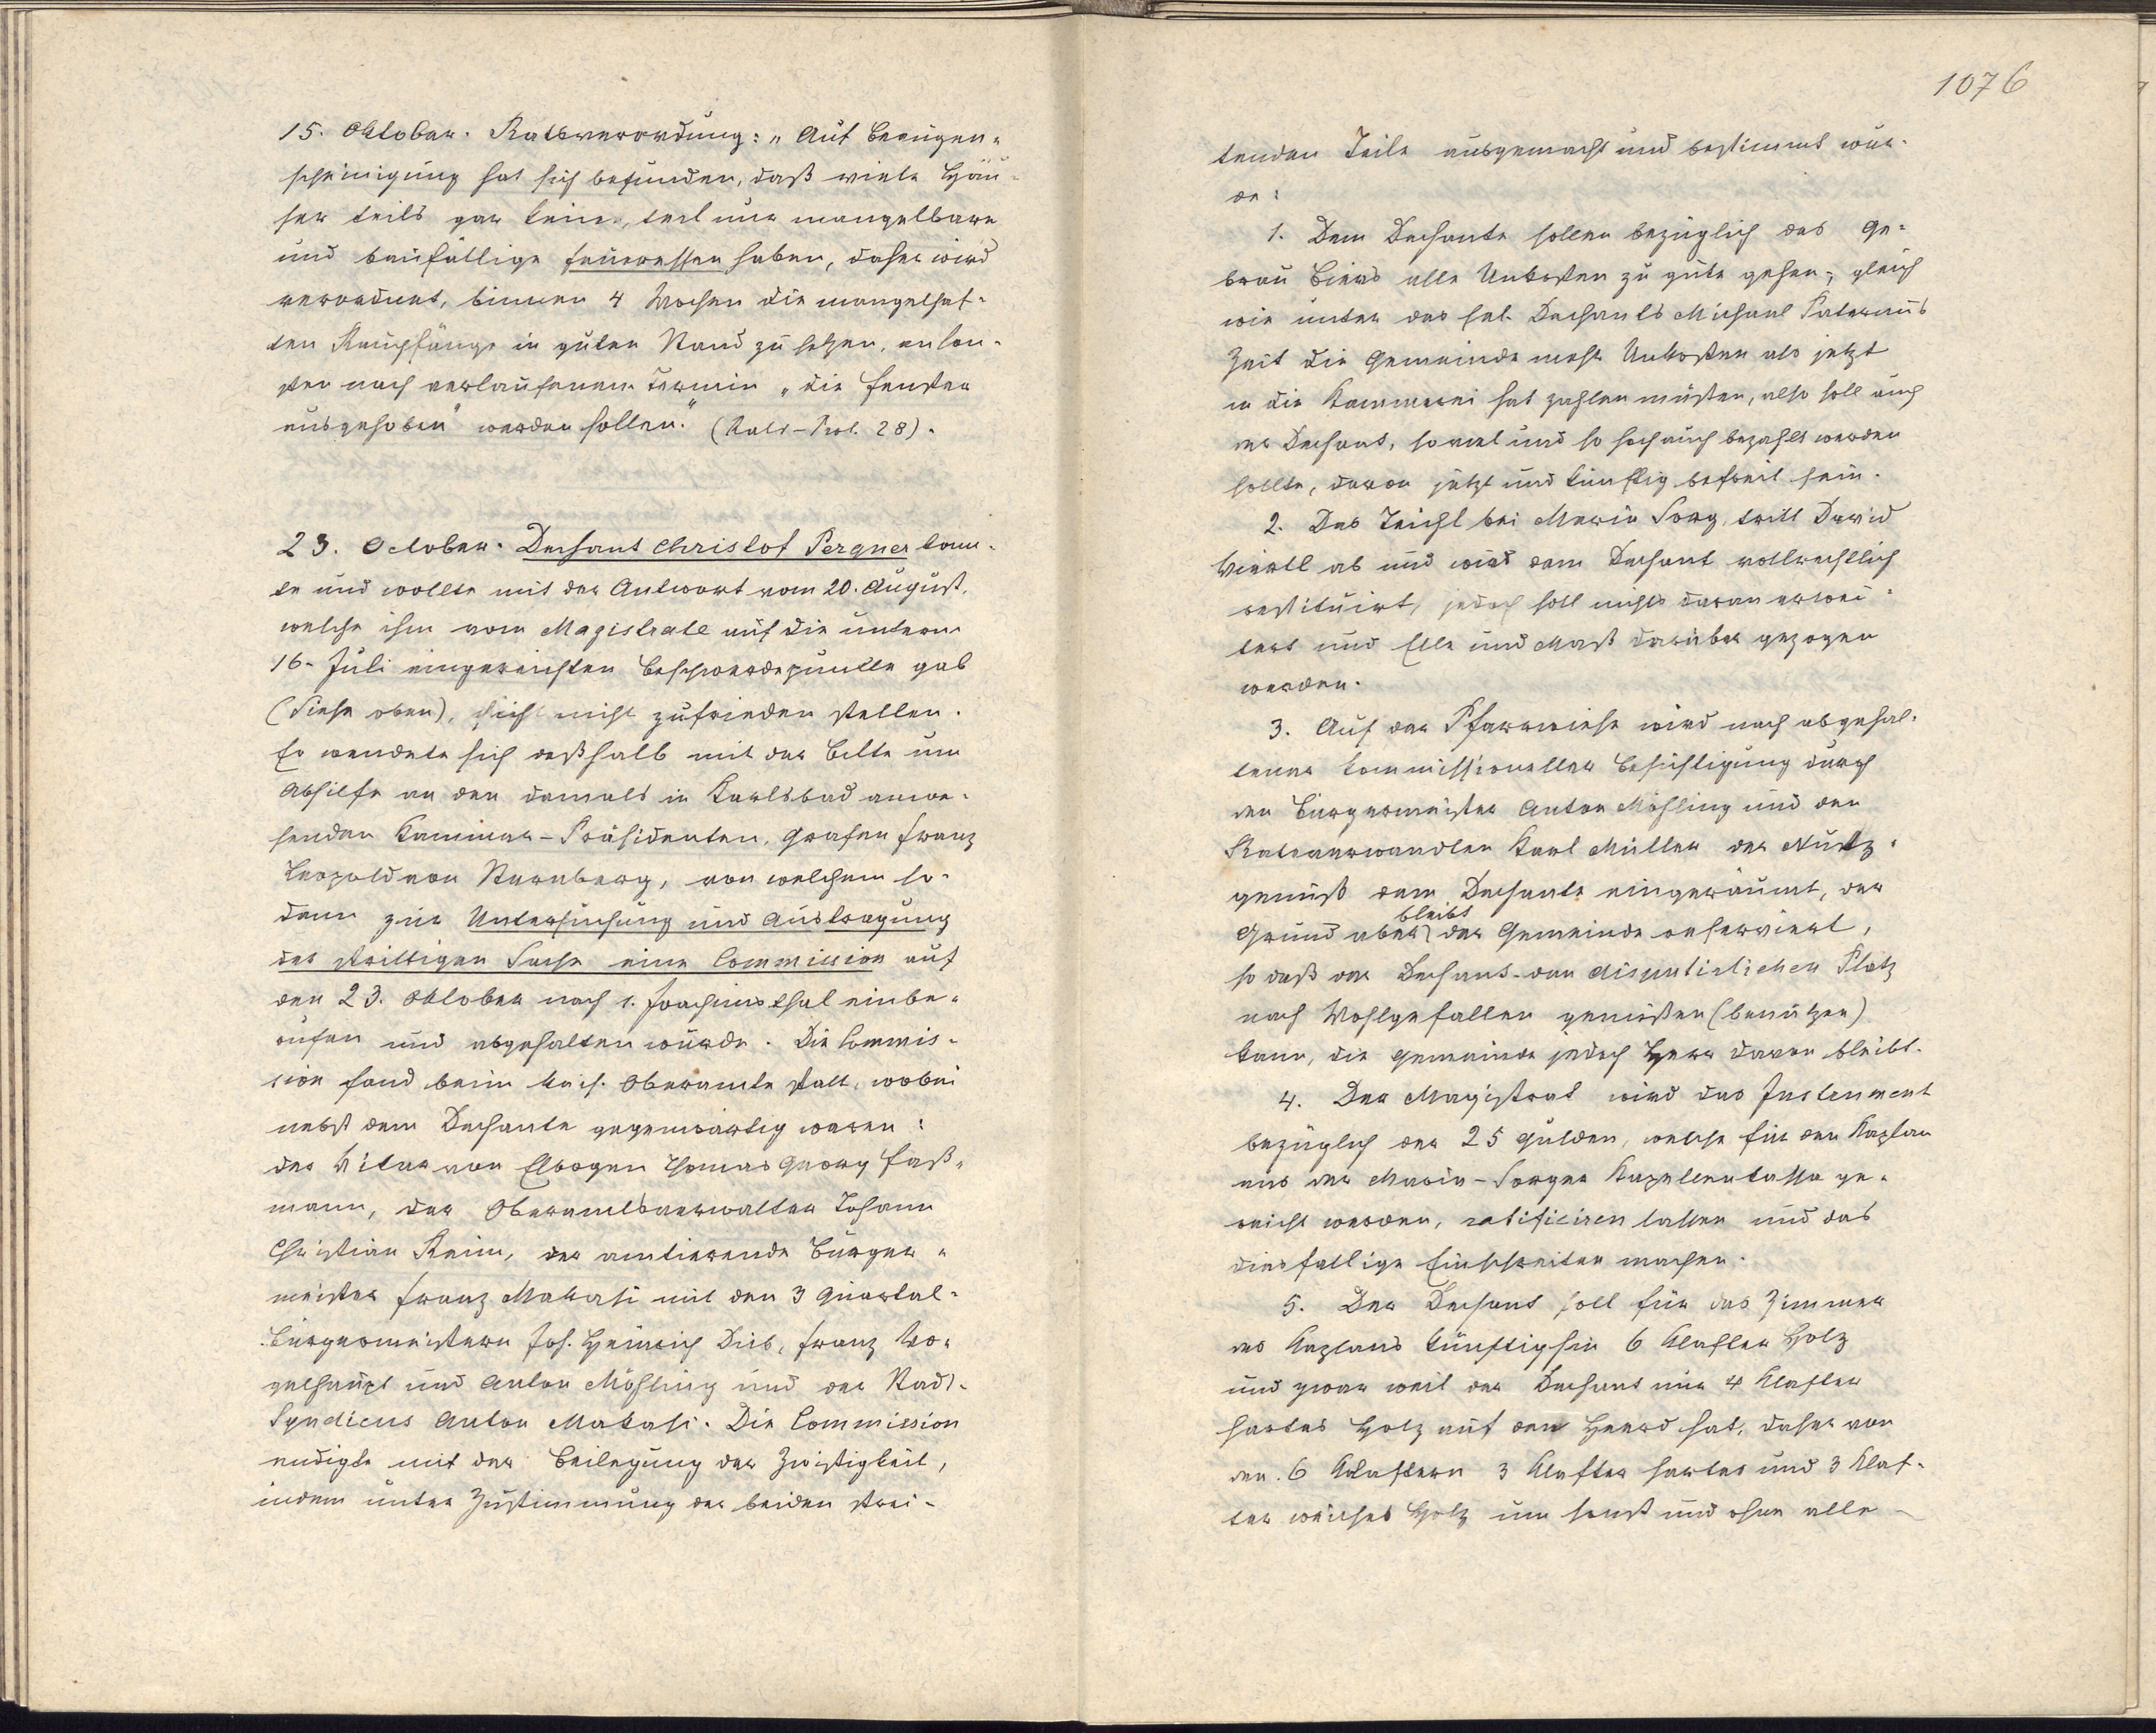 15. Oktober. Ratsverordnung: "Auf Beaugen-
scheinigung hat sich befunden, daß viele Häu-
ser teils gar keine, teil nur mangelbare
und baufällige Feueressen haben, daher wird
verordnet, binnen 4 Wochen die mangelhaf-
ten Rauchfänge in guten Stand zu setzen, anson-
sten nach verlaufenem Termin "die Fenster
ausgehoben" werden sollen." (Rats-Prot. 28).
23. October. Dechant Christof Pergner konn-
te und wollte mit der Antwort vom 20. August,
welche ihm vom Magistrate auf die unterm
16. Juli eingereichten Beschwerdepunkte gab
(Siehe oben), sich nicht zufrieden stellen.
Er wendete sich deßhalb mit der Bitte um
Abhilfe an den damals in Karlsbad anwe-
senden Kammer-Präsidenten, Grafen Franz
Leopold von Sternberg, von welchem so-
dann zur Untersuchung und Austragung
der strittigen Sache eine Commission auf
den 23. Oktober nach S. Joachimsthal einbe-
rufen und abgehalten wurde. Die Commis-
sion fand beim kais. Oberamte statt, wobei
nebst dem Dechante gegenwärtig waren:
der Vikar von Elbogen Thomas Georg Faß-
mann, der Oberamtsverwalter Johann
Christian Reim, der amtierende Bürger-
meister Franz Makasi mit den 3 Quartal-
Bürgermeistern Joh. Heinrich Dieb, Franz Vo-
gelhaupt und Anton Möhling und der Stadt-
Syndicus Anton Makasi. Die Commission
endigte mit der Beilegung der Zwistigkeit,
indem unter Zustimmung der beiden strei-
1076
tenden Teile ausgemacht und bestimmt wur-
de:
1. Dem Dechante sollen bezüglich des Ge-
bräu Biers alle Unkosten zu gute gehen; gleich
wie unter des sel. Dechants Michael Paterauß
Zeit die Gemeinde mehr Unkosten als jetzt
in die Kammerei hat zahlen müßen, also soll auch
der Dechant, soviel und so hoch auch bezahlt werden
sollte, davon jetzt und künftig befreit sein.
2. Das Teichl bei Maria Sorg tritt David
Viertl ab und wird dem Dechant vollrechtlich
restituirt, jedoch soll nichts daran erwei-
tert und Elle und Maß darüber gezogen
werden.
3. Auf der Pfarrwiese wird nach abgehal-
tener kommissioneller Besichtigung durch
den Bürgermeister Anton Möhling und den
Ratsverwandten Karl Müller der Nutz-
genuß dem Dechante eingeräumt, der
Grund aber bleibt der Gemeinde reserviert,
so daß der Dechant den disputirlichen Platz
nach Wohlgefallen genießen (benützen)
kann, die Gemeinde jedoch Herr davon bleibt.
4. Der Magistrat wird das Instrument
bezüglich der 25 Gulden, welche für den Kaplan
aus der Maria-Sorger Kapellenkassa ge-
reicht werden, ratificiren lassen und das
diesfällige Einschreiten machen.
5. Der Dechant soll für das Zimmer
des Kaplans künftighin 6 Klafter Holz
und zwar weil der Dechant nur 4 Klafter
hartes Holz auf den Heerd hat, daher von
den 6 Klaftern 3 Klafter hartes und 3 Klaf-
ter weiches Holz um sonst und ohne alle